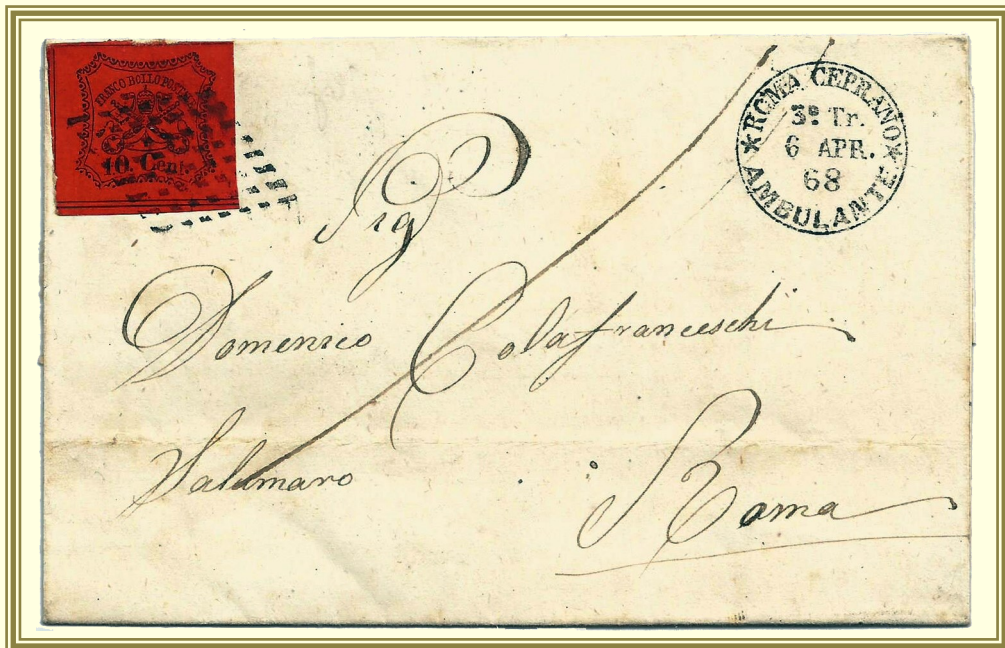 FRANCO BOLLO POSTALE
10. Cent.
★ROMA CEPRANO★
3ª Tr.
6 APR.
68
AMBULANTE
Sig
Domenico Colafranceschi
Salumaro
Roma